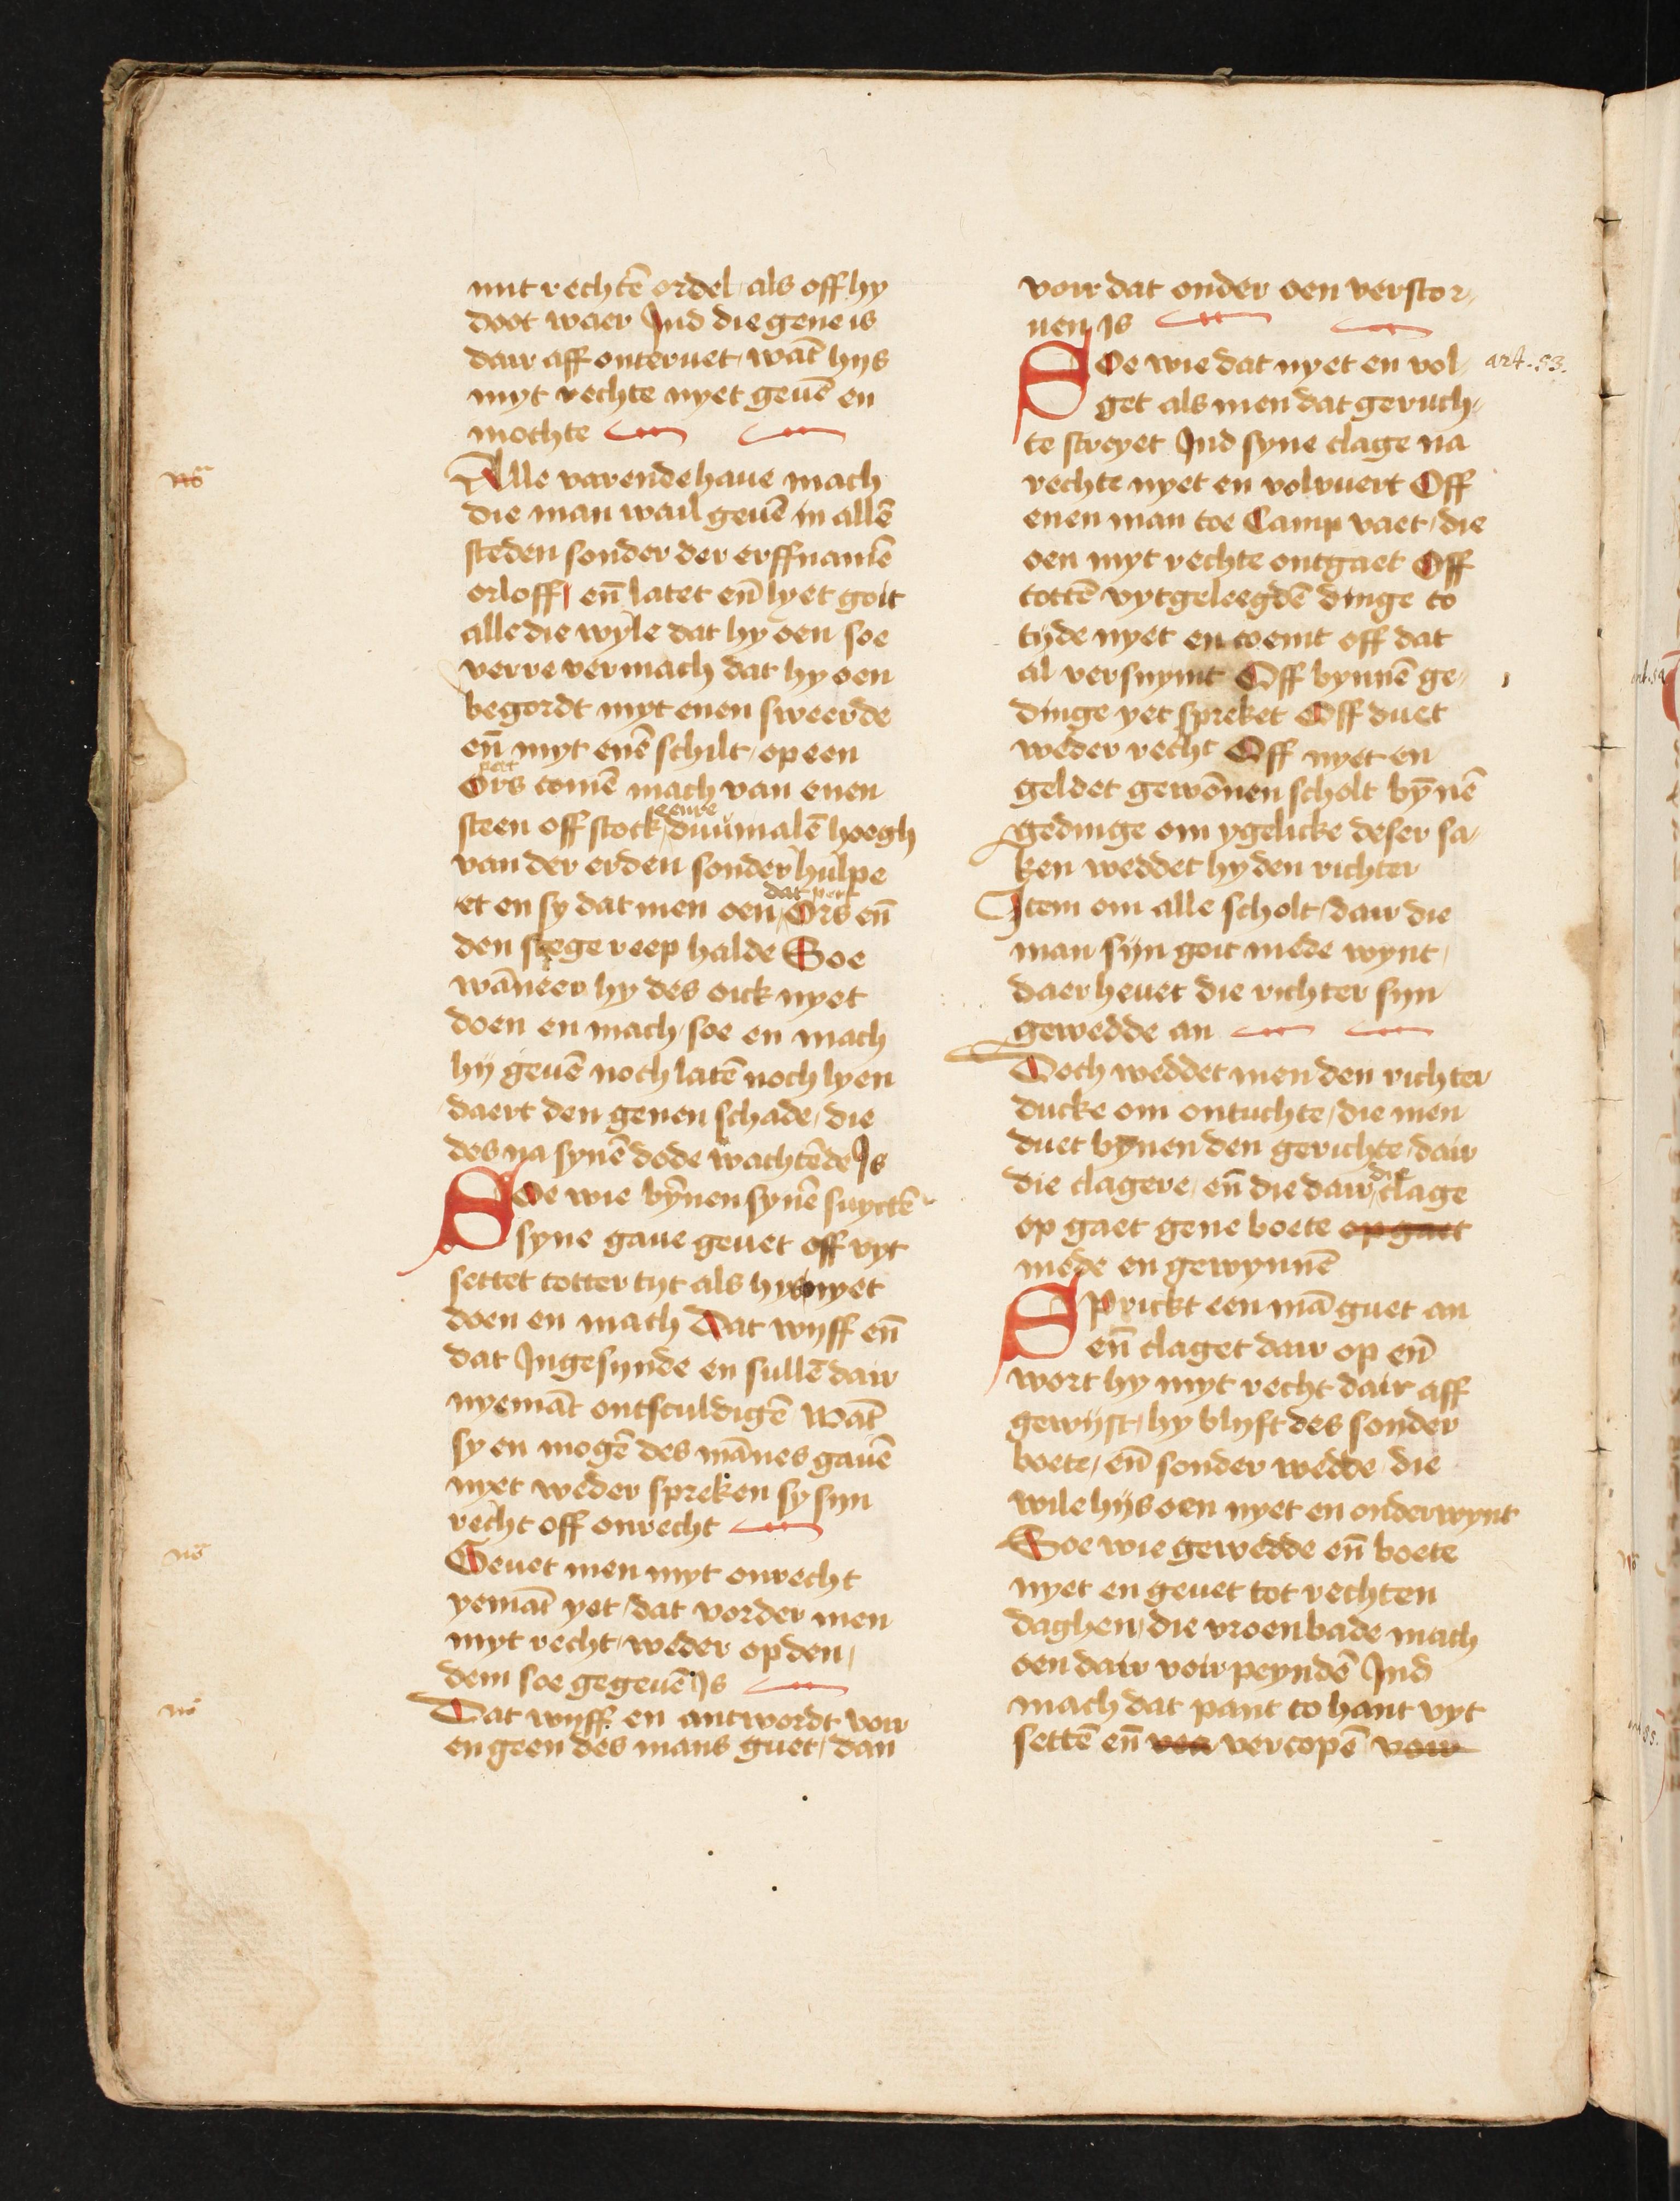 mit rechtē ordel als off hy
doot waer Ind die gene is
dair aff onteruet wāt hijs
myt rechte nyet geuē en
mochte
Alle varende haue mach
die man wail geuē in allē
steden sonder der erffnamē
orloff en̄ latet en̄ lyet goit
alle die wyle dat hy oen soe
verre vermach dat hy oen
begordt myt enen sweerde
en̄ myt enē schilt op een
pert
Ors comē mach van enen
eenre
steen off stock duumalē hoegh
van der erden sonder hulpe
dat pert
et en sy dat men oen Ors en̄
den stege reep halde Soe
wāneer hy des oick nyet
doen en mach soe en mach
hij geuē noch latē noch lyen
daert den genen schade die
des na synē dode wachtēde Is
Soe wie bȳnen synē suyctē
syne gaue geuet off vyt
settet totter tyt als hys nyet
doen en mach Dat wyff en̄
dat Ingesynde en sullē dair
nyemāt ontsculdigē wāt
sy en mogē des mānes gauē
nyet weder spreken sy syn
recht off onrecht
Geuet men myt onrecht
yemāt yet dat vorder men
myt recht weder op den
dem soe gegeuē Is
Dat wyff en antwordt voir
en geen des mans guet dan
voir dat onder oen verstor
uen Is
Soe wie dat nyet en vol
art. 53.
get als men dat geruch
te screyet Ind syne clage na
rechte nyet en volvuert Off
enen man toe Camp vaet die
oen myt rechte ontgaet Off
tottē vytgeleegdē dinge to
tyde nyet en coemt off dat
al versuymt Off bynnē ge
dinge yet spreket Off duet
weder recht Off nyet en
geldet gewōnen scholt bȳnē
gedinge om ygelicke deser sa
ken weddet hy den richter
Item om alle scholt dair die
man sijn goit mede wynt
daer heuet die richter syn
gewedde an
Doch weddet men den richter
ducke om ontuchte die men
duet bynen den gerichte dair
die
die clagere en̄ die dair clage
op gaet gene boete op gaet
mede en gewynnē
Sprickt een mā guet an
en̄ claget dair op en̄
wort hy myt recht dair aff
gewijst hy blyft des sonder
boete en̄ sonder wedde die
wile hijs oen nyet en onderwynt
Soe wie gewedde en̄ boete
nyet en geuet tot rechten
daghen die vroenbade mach
oen dair voir peyndē Ind
mach dat pant to hant vyt
settē en̄ ver vercopē voir